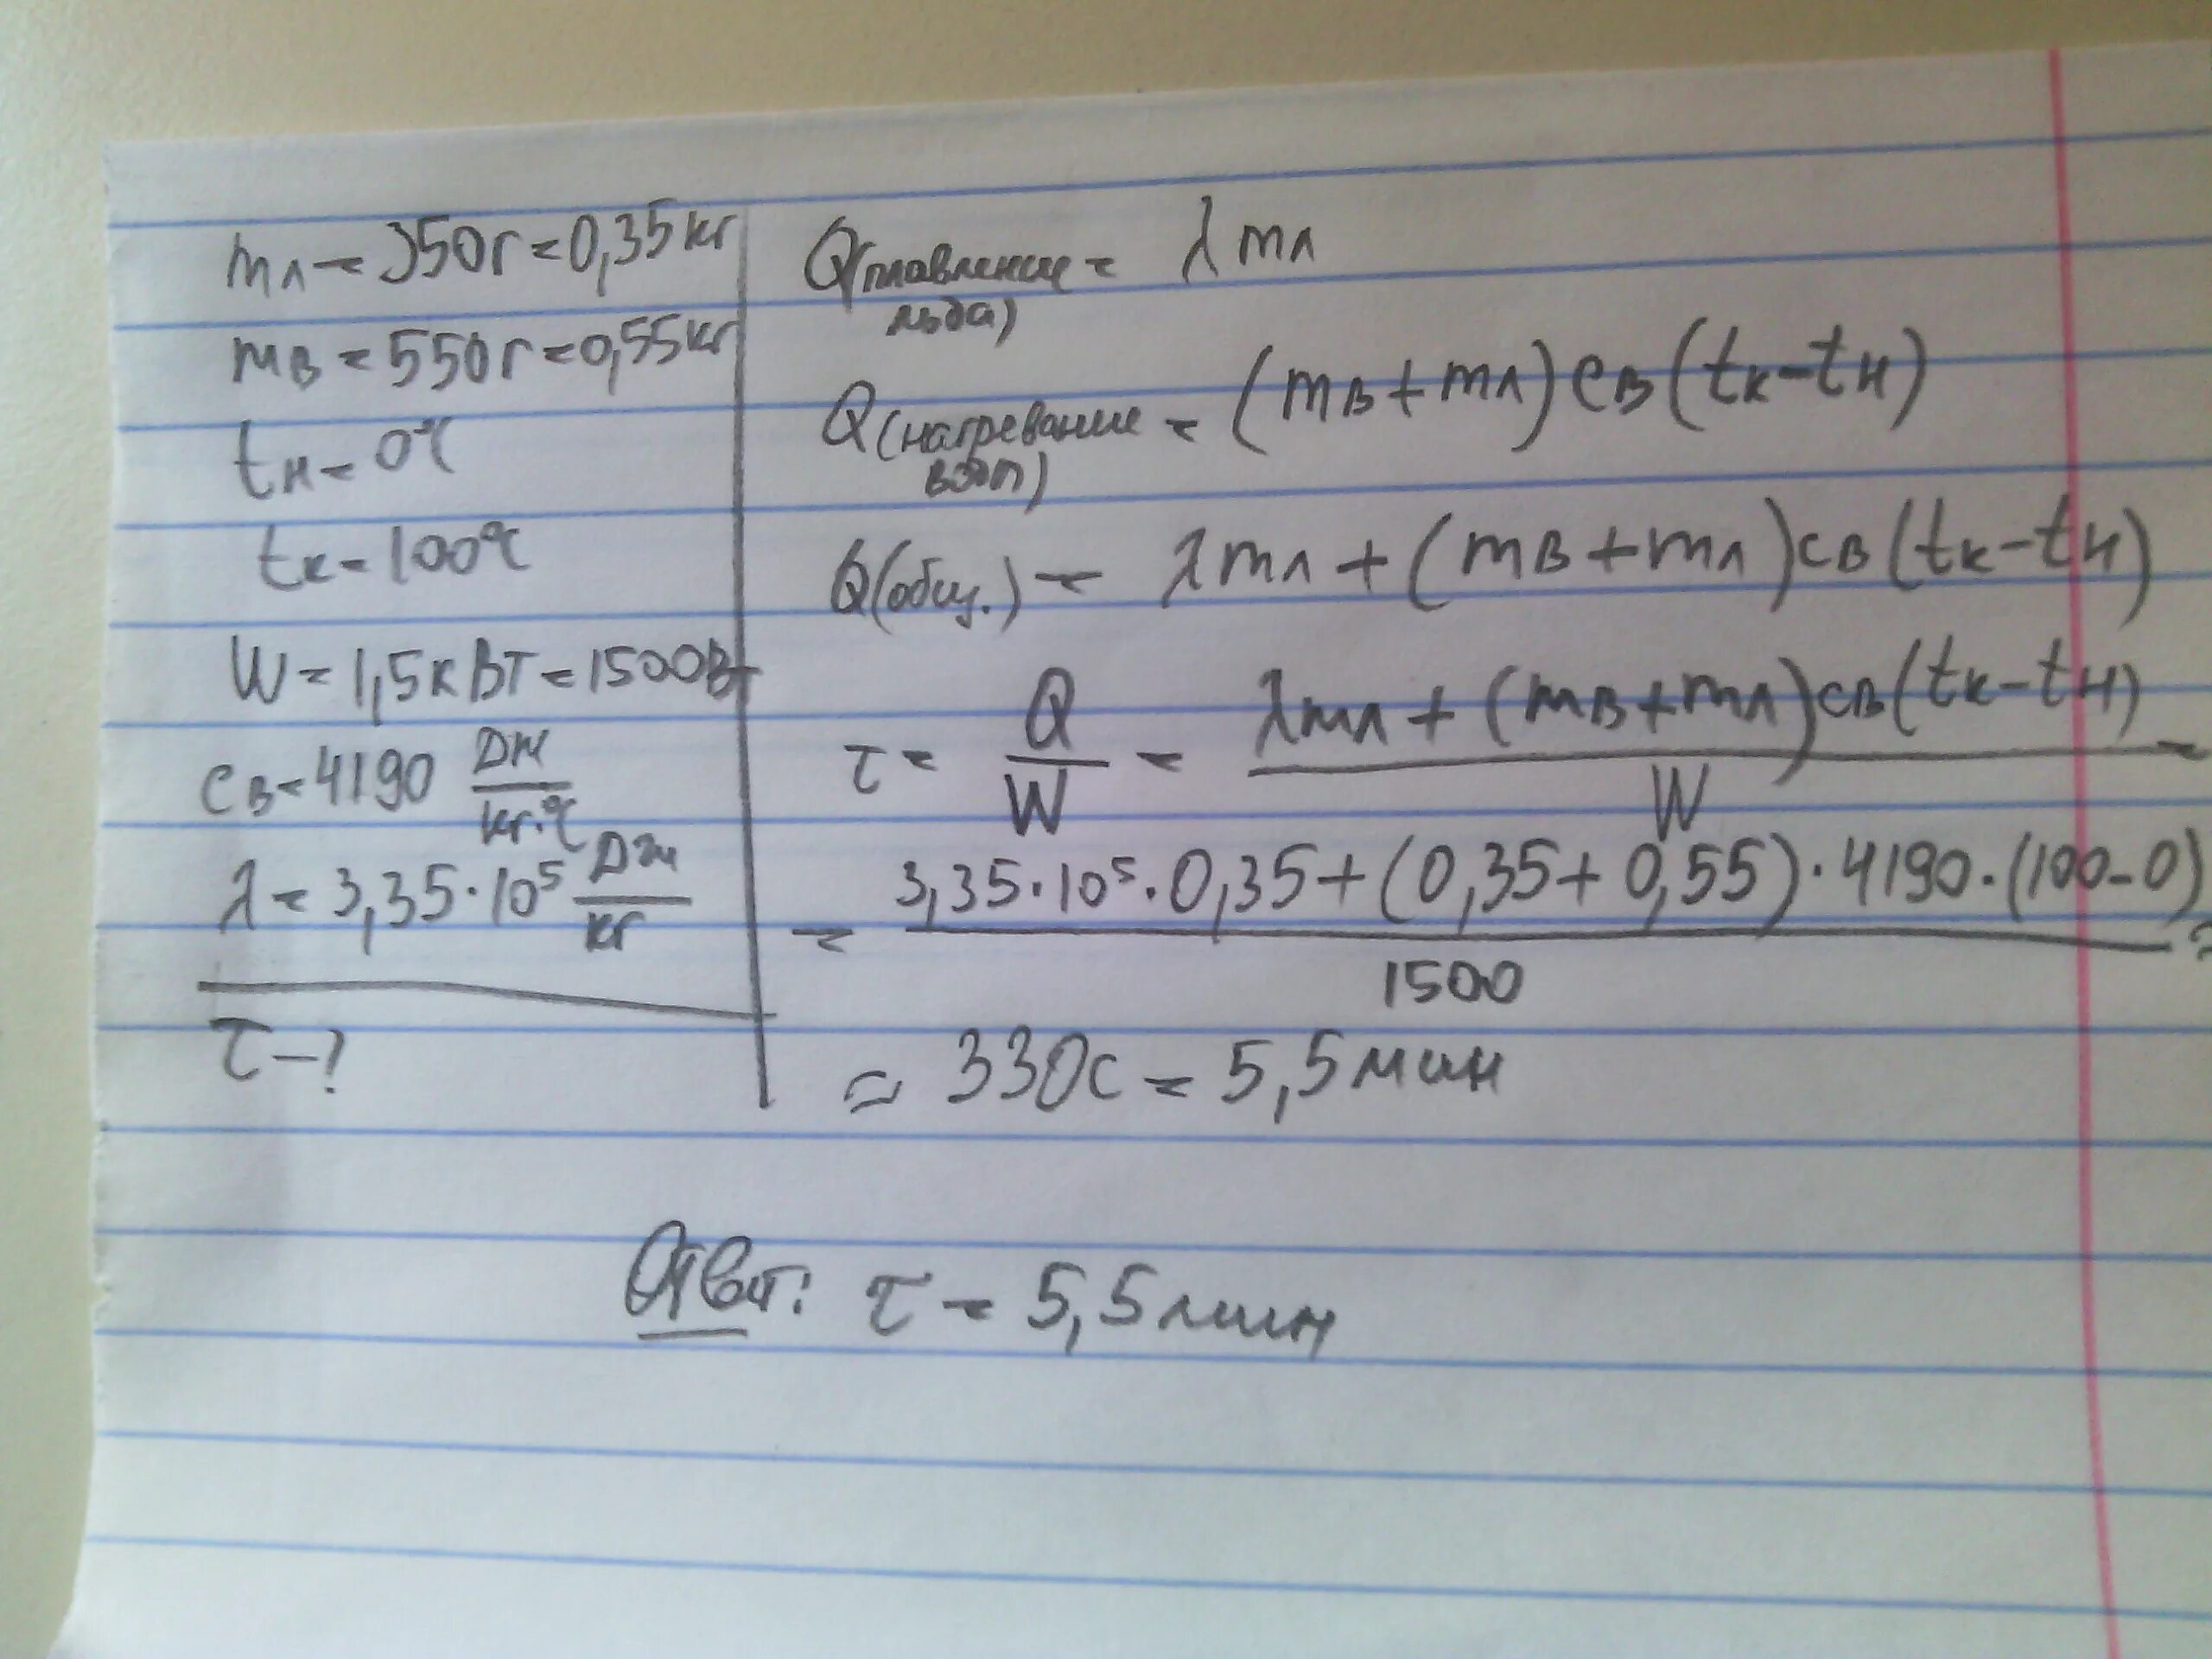 mл = 350г = 0,35кг
mв = 550г = 0,55кг
tн = 0°C
tк = 100°C
W = 1,5кВт = 1500Вт
cв = 4190 Дж/кг·°C
λ = 3,35·10⁵ Дж/кг
τ - ?
Q(плавление льда) = λmл
Q(нагревание воды) = (mв + mл)cв(tк - tн)
Q(общ.) = λmл + (mв + mл)cв(tк - tн)
τ = Q/W = λmл + (mв + mл)cв(tк - tн)/W =
= 3,35·10⁵·0,35 + (0,35 + 0,55)·4190·(100 - 0)/1500 =
= 330с = 5,5мин
Ответ: τ = 5,5мин